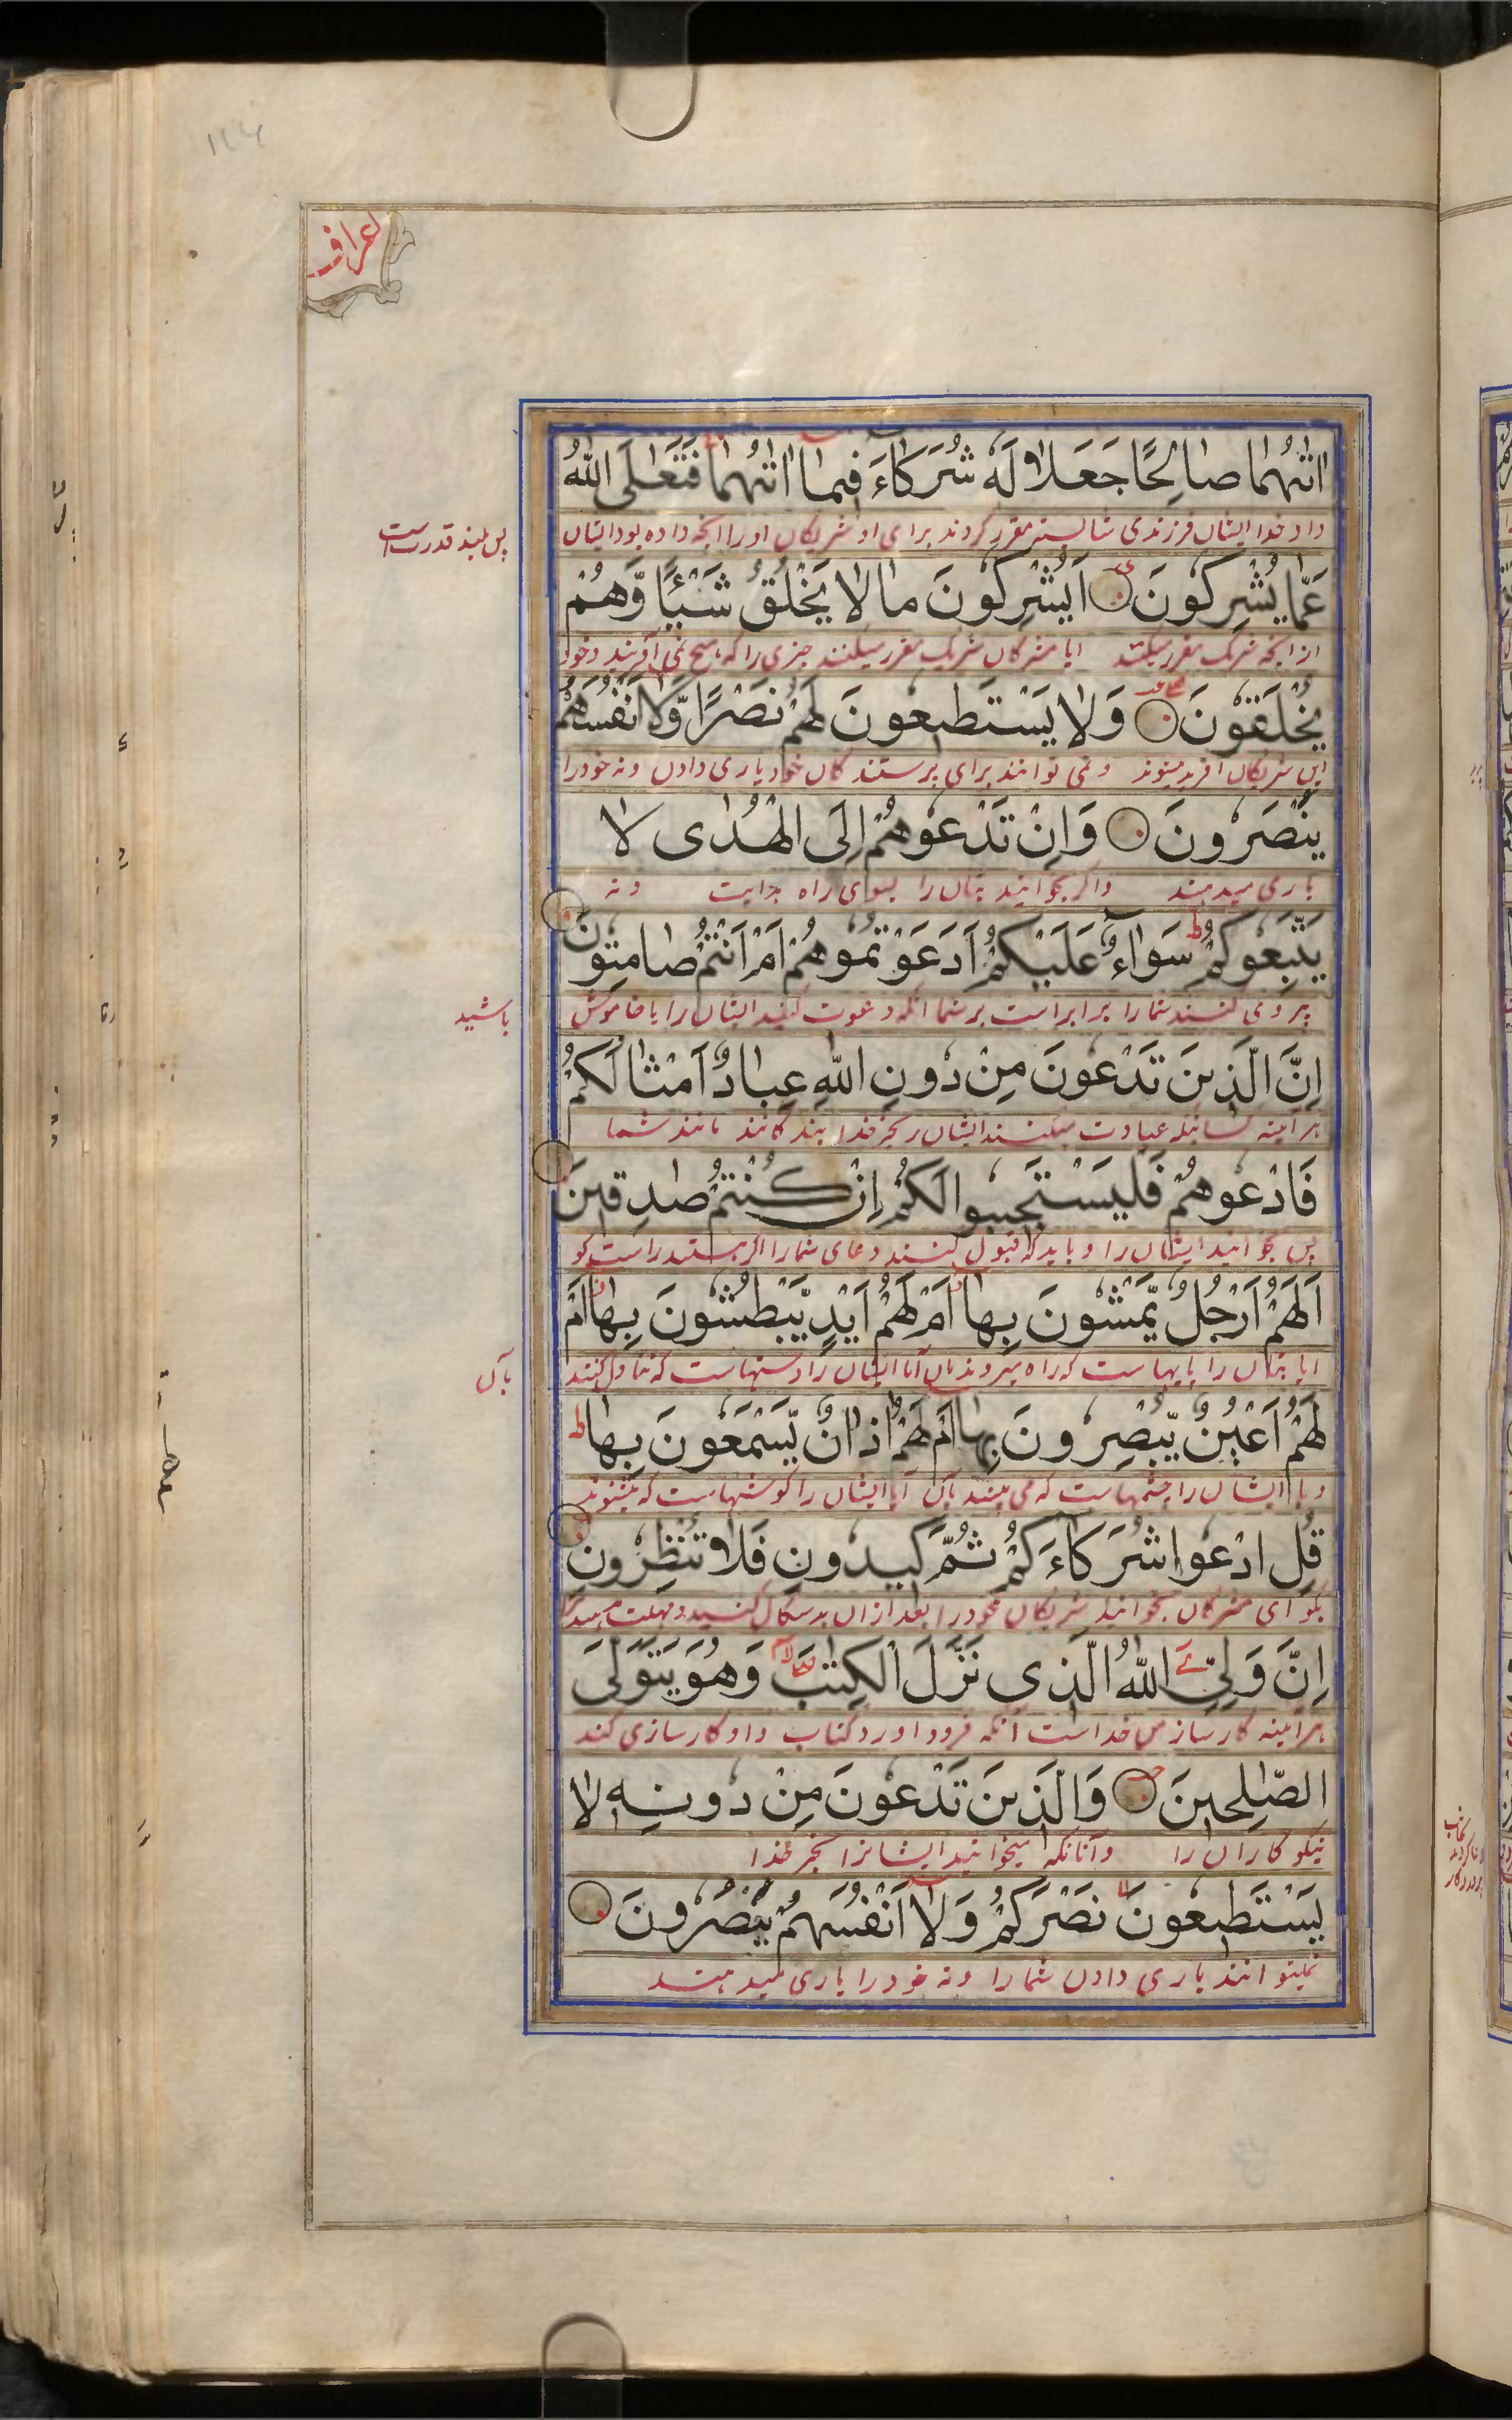 اعراف
اٰتٰىهُما صالِحًا جَعَلا لَهٗ شُرَكاءَ فيما اٰتٰىهُما فَتَعٰلَى اللّٰهُ
داد خدا ایشان فرزندی شایسته مقرر کردند برای او شریکان اورا انچه داده بود ایشان
پس بلند قدرست
عَمّا يُشرِكونَ اَيُشرِكونَ ما لا يَخْلُقُ شَيْئًا وَّهُمْ
ازانچه شریک مقرر میکنند ایا مشرکان شریک مقرر میکنند چیزی را که هیچ نمی آفریند و خود
يُخْلَقونَ وَلا يَسْتَطيعونَ لَهُمْ نَصْرًا وَّلا اَنْفُسَهُمْ
این شریکان افریده میشوند و نمی توانند برای پرستندگان خود یاری دادن و نه خود را
يَنْصُرونَ وَاِنْ تَدْعوهُمْ اِلَى الْهُدٰى لا
یاری میدهند واگر بخوانید بتان را بسوی راه هدایت و نه
يَتَّبِعوكُمْ سَواءٌ عَلَيْكُمْ اَدَعَوْتُموهُمْ اَمْ اَنْتُمْ صامِتونَ
پیروی کنند شما را برابر است بر شما انکه دعوت کنید ایشان را یا خاموش
باشید
اِنَّ الَّذينَ تَدْعونَ مِنْ دونِ اللّٰهِ عِبادٌ اَمْثالُكُمْ
هر آیینه کسانیکه عبادت میکنند ایشان را بجز خدا بندگانند مانند شما
فَادْعوهُمْ فَلْيَسْتَجيبوا لَكُمْ اِنْ كُنْتُمْ صٰدِقينَ
پس بخوانید ایشان را و باید که قبول کنند دعای شما را اگر هستید راست گو
اَلَهُمْ اَرْجُلٌ يَّمْشونَ بِها اَمْ لَهُمْ اَيْدٍ يَّبْطِشونَ بِها اَمْ
ایا بتان را پایهاست که راه میروند بان آیا ایشان را دستهاست که تناول کنند
بآن
لَهُمْ اَعْيُنٌ يُّبْصِرونَ بِها اَمْ لَهُمْ اٰذانٌ يَّسْمَعونَ بِها
و یا ایشان را چشمهاست که می بینند بآن آیا ایشان را گوشهاست که بشنوند
قُلِ ادْعوا شُرَكاءَكُمْ ثُمَّ كيدونِ فَلا تُنْظِرونِ
بگو ای مشرکان بخوانید شریکان خود را بعد ازان بدسگالی کنید و مهلت مدهید
اِنَّ وَلِيِّىَ اللّٰهُ الَّذى نَزَّلَ الْكِتٰبَ وَهُوَ يَتَوَلَّى
هر آیینه کارساز من خداست آنکه فرود اورد کتاب و او کارسازی کند
الصّٰلِحينَ وَالَّذينَ تَدْعونَ مِنْ دونِهٖ لا
نیکو کاران را وآنانکه میخوانید ایشانرا بجز خدا
يَسْتَطيعونَ نَصْرَكُمْ وَلا اَنْفُسَهُمْ يَنْصُرونَ
نمیتوانند یاری دادن شما را و نه خود را یاری میدهند